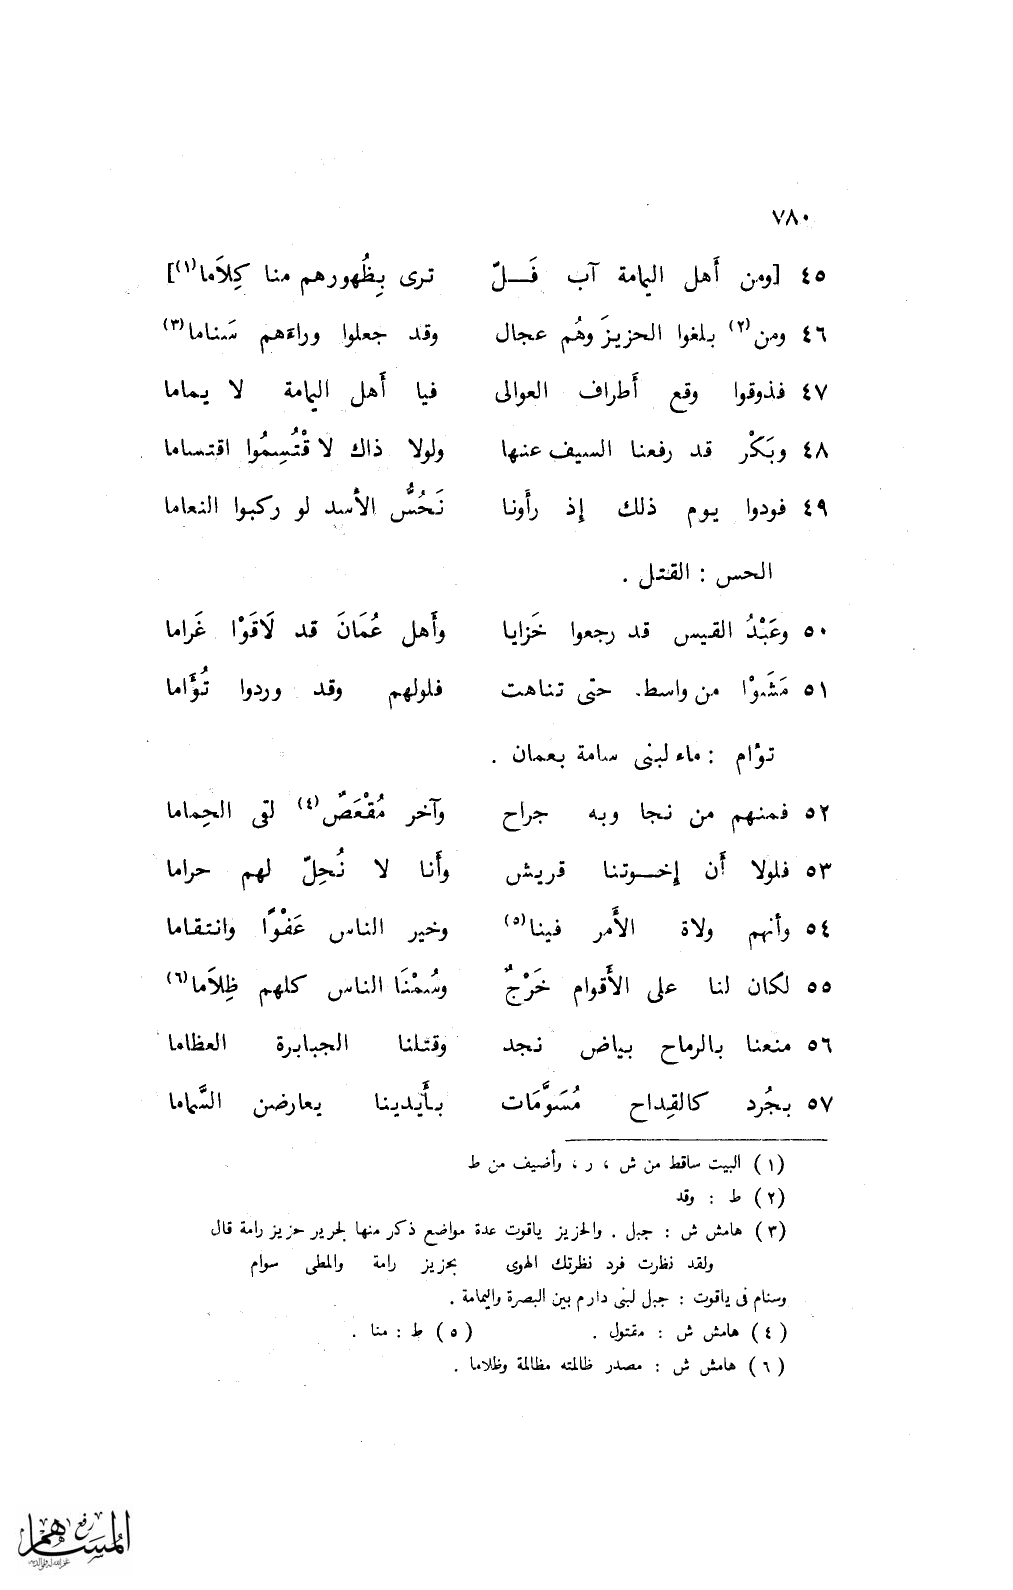 ٧٨٠
٤٥ [ومن أَهل اليمامة آب فَـــلّ ترى بِظُهورهم منا كِلاَما(١)]
٤٦ ومن(٢) بلغوا الحزيزَ وهُم عجال وقد جعلوا وراءَهم سَناما(٣)
٤٧ فذوقوا وقع أَطراف العوالى فيا أَهل اليمامة لا يماما
٤٨ وبَكْر قد رفعنا السيف عنها ولولا ذاك لاقْتُسِمُوا اقتساما
٤٩ فودوا يوم ذلك إذ رأَونا نَحُسُّ الأُسد لو ركبوا النعاما
الحس : القتل .
٥٠ وعَبْدُ القيس قد رجعوا خَزايا وأَهل عُمَانَ قد لَاقَوْا غَراما
٥١ مَشَوْا من واسط حتى تناهت فلولهم وقد وردوا تُؤَاما
تؤام : ماء لبنى سامة بعمان .
٥٢ فمنهم من نجا وبه جراح وآخر مُقْعَصٌ(٤) لقى الحِماما
٥٣ فلولا أَن إخــوتنا قريش وأَنا لا نُحِلّ لهم حراما
٥٤ وأنهم ولاة الأَمر فينا(٥) وخير الناس عَفْوًا وانتقاما
٥٥ لكان لنا على الأَقوام خَرْجٌ وسُمْنَا الناس كلهم ظِلاَما(٦)
٥٦ منعنا بالرماح بياض نجد وقتلنا الجبابرة العظاما
٥٧ بجُرد كالقِداح مُسَوَّمَات بأَيدينا يعارضن السَّماما
(١) البيت ساقط من ش ، ر ، وأضيف من ط
(٢) ط : وقد
(٣) هامش ش : جبل . والحزيز ياقوت عدة مواضع ذكر منها لجرير حزيز رامة قال
ولقد نظرت فرد نظرتك الهوى بحزيز رامة والمطى سوام
وسنام فى ياقوت : جبل لبنى دارم بين البصرة واليمامة .
(٤) هامش ش : مقتول . (٥) ط : منا .
(٦) هامش ش : مصدر ظالمته مظالمة وظلاما .
رفع
المساهم